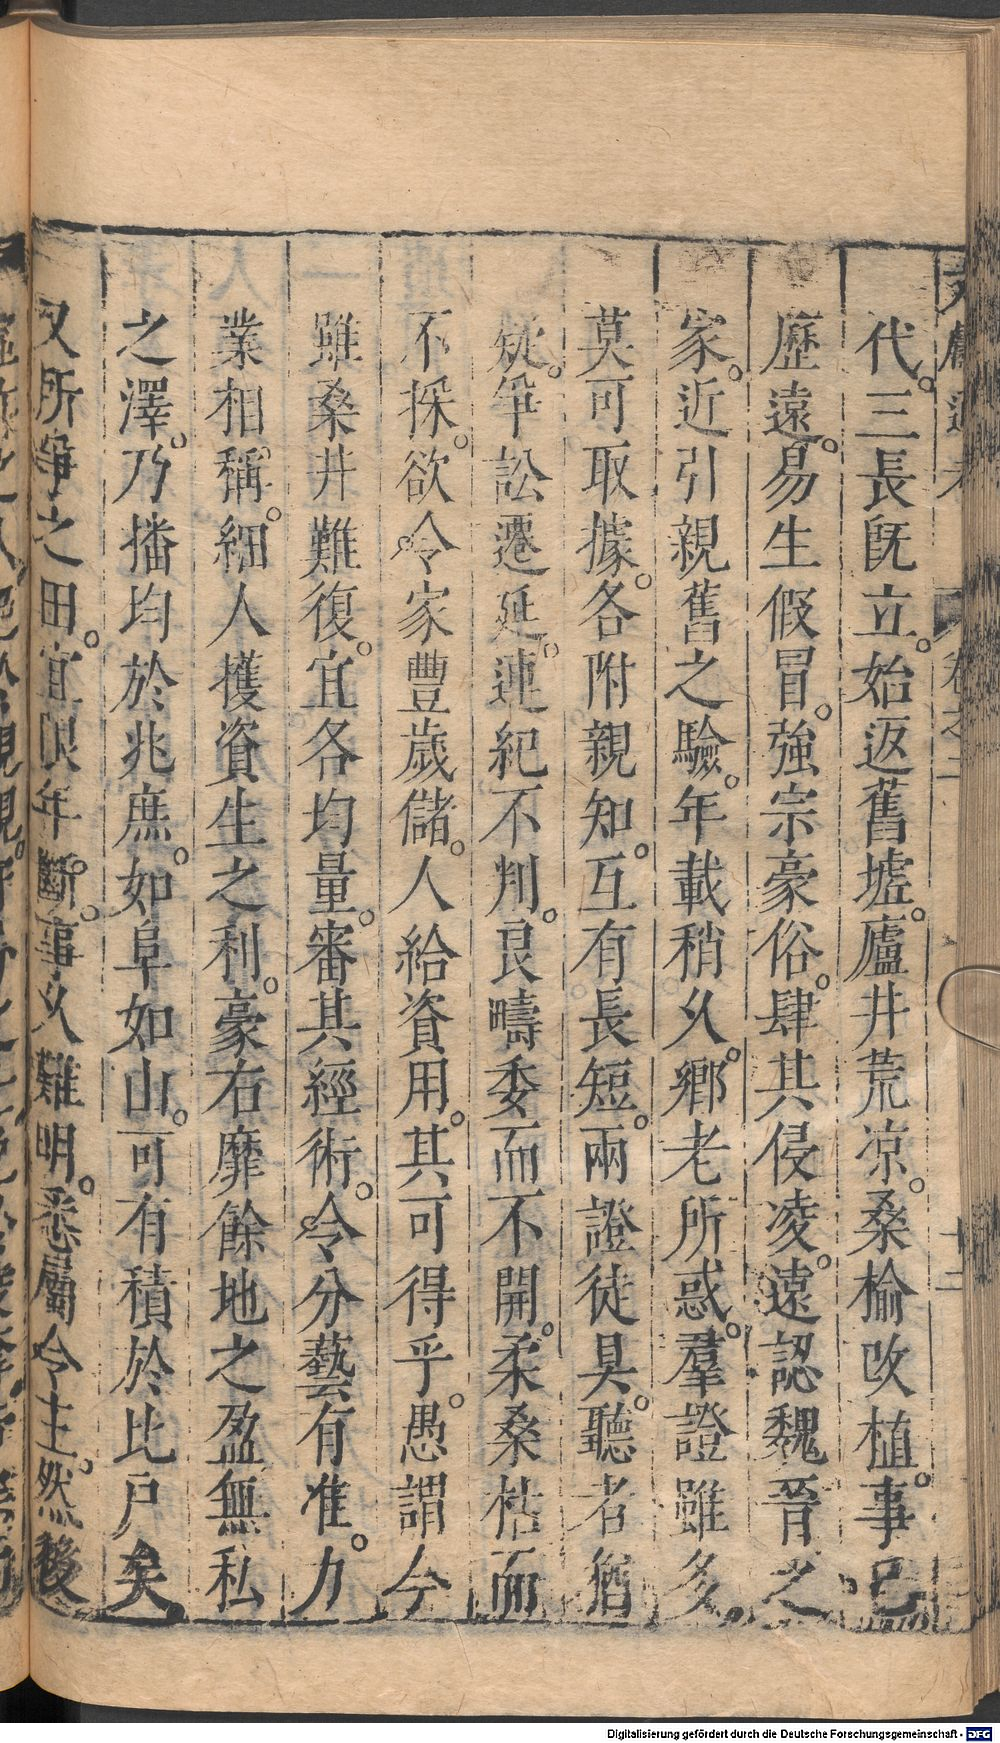 代。三長旣立。始返舊墟。廬井荒凉。桑楡改植。事已
歷遠。易生假冒。強宗豪俗。肆其侵凌。遠認魏晉之
家。近引親舊之驗。年載稍久。鄉老所惑。羣證雖多。
莫可取據。各附親知。互有長短。兩證徒具。聽者猶
疑。爭訟遷延。連紀不判。良疇委而不開。柔桑枯而
不採。欲令家豐歲儲。人給資用。其可得乎。愚謂今
雖桑井難復。宜各均量。審其經術。令分藝有准。力
業相稱。細人獲資生之利。豪右靡餘地之盈無私
之澤。乃播均於兆庶。如阜如山。可有積於比戶矣。
又所爭之田。宜限年斷。事久難明。悉屬今主。然後
卷之二
十二
Digitalisierung gefördert durch die Deutsche Forschungsgemeinschaft - DFG